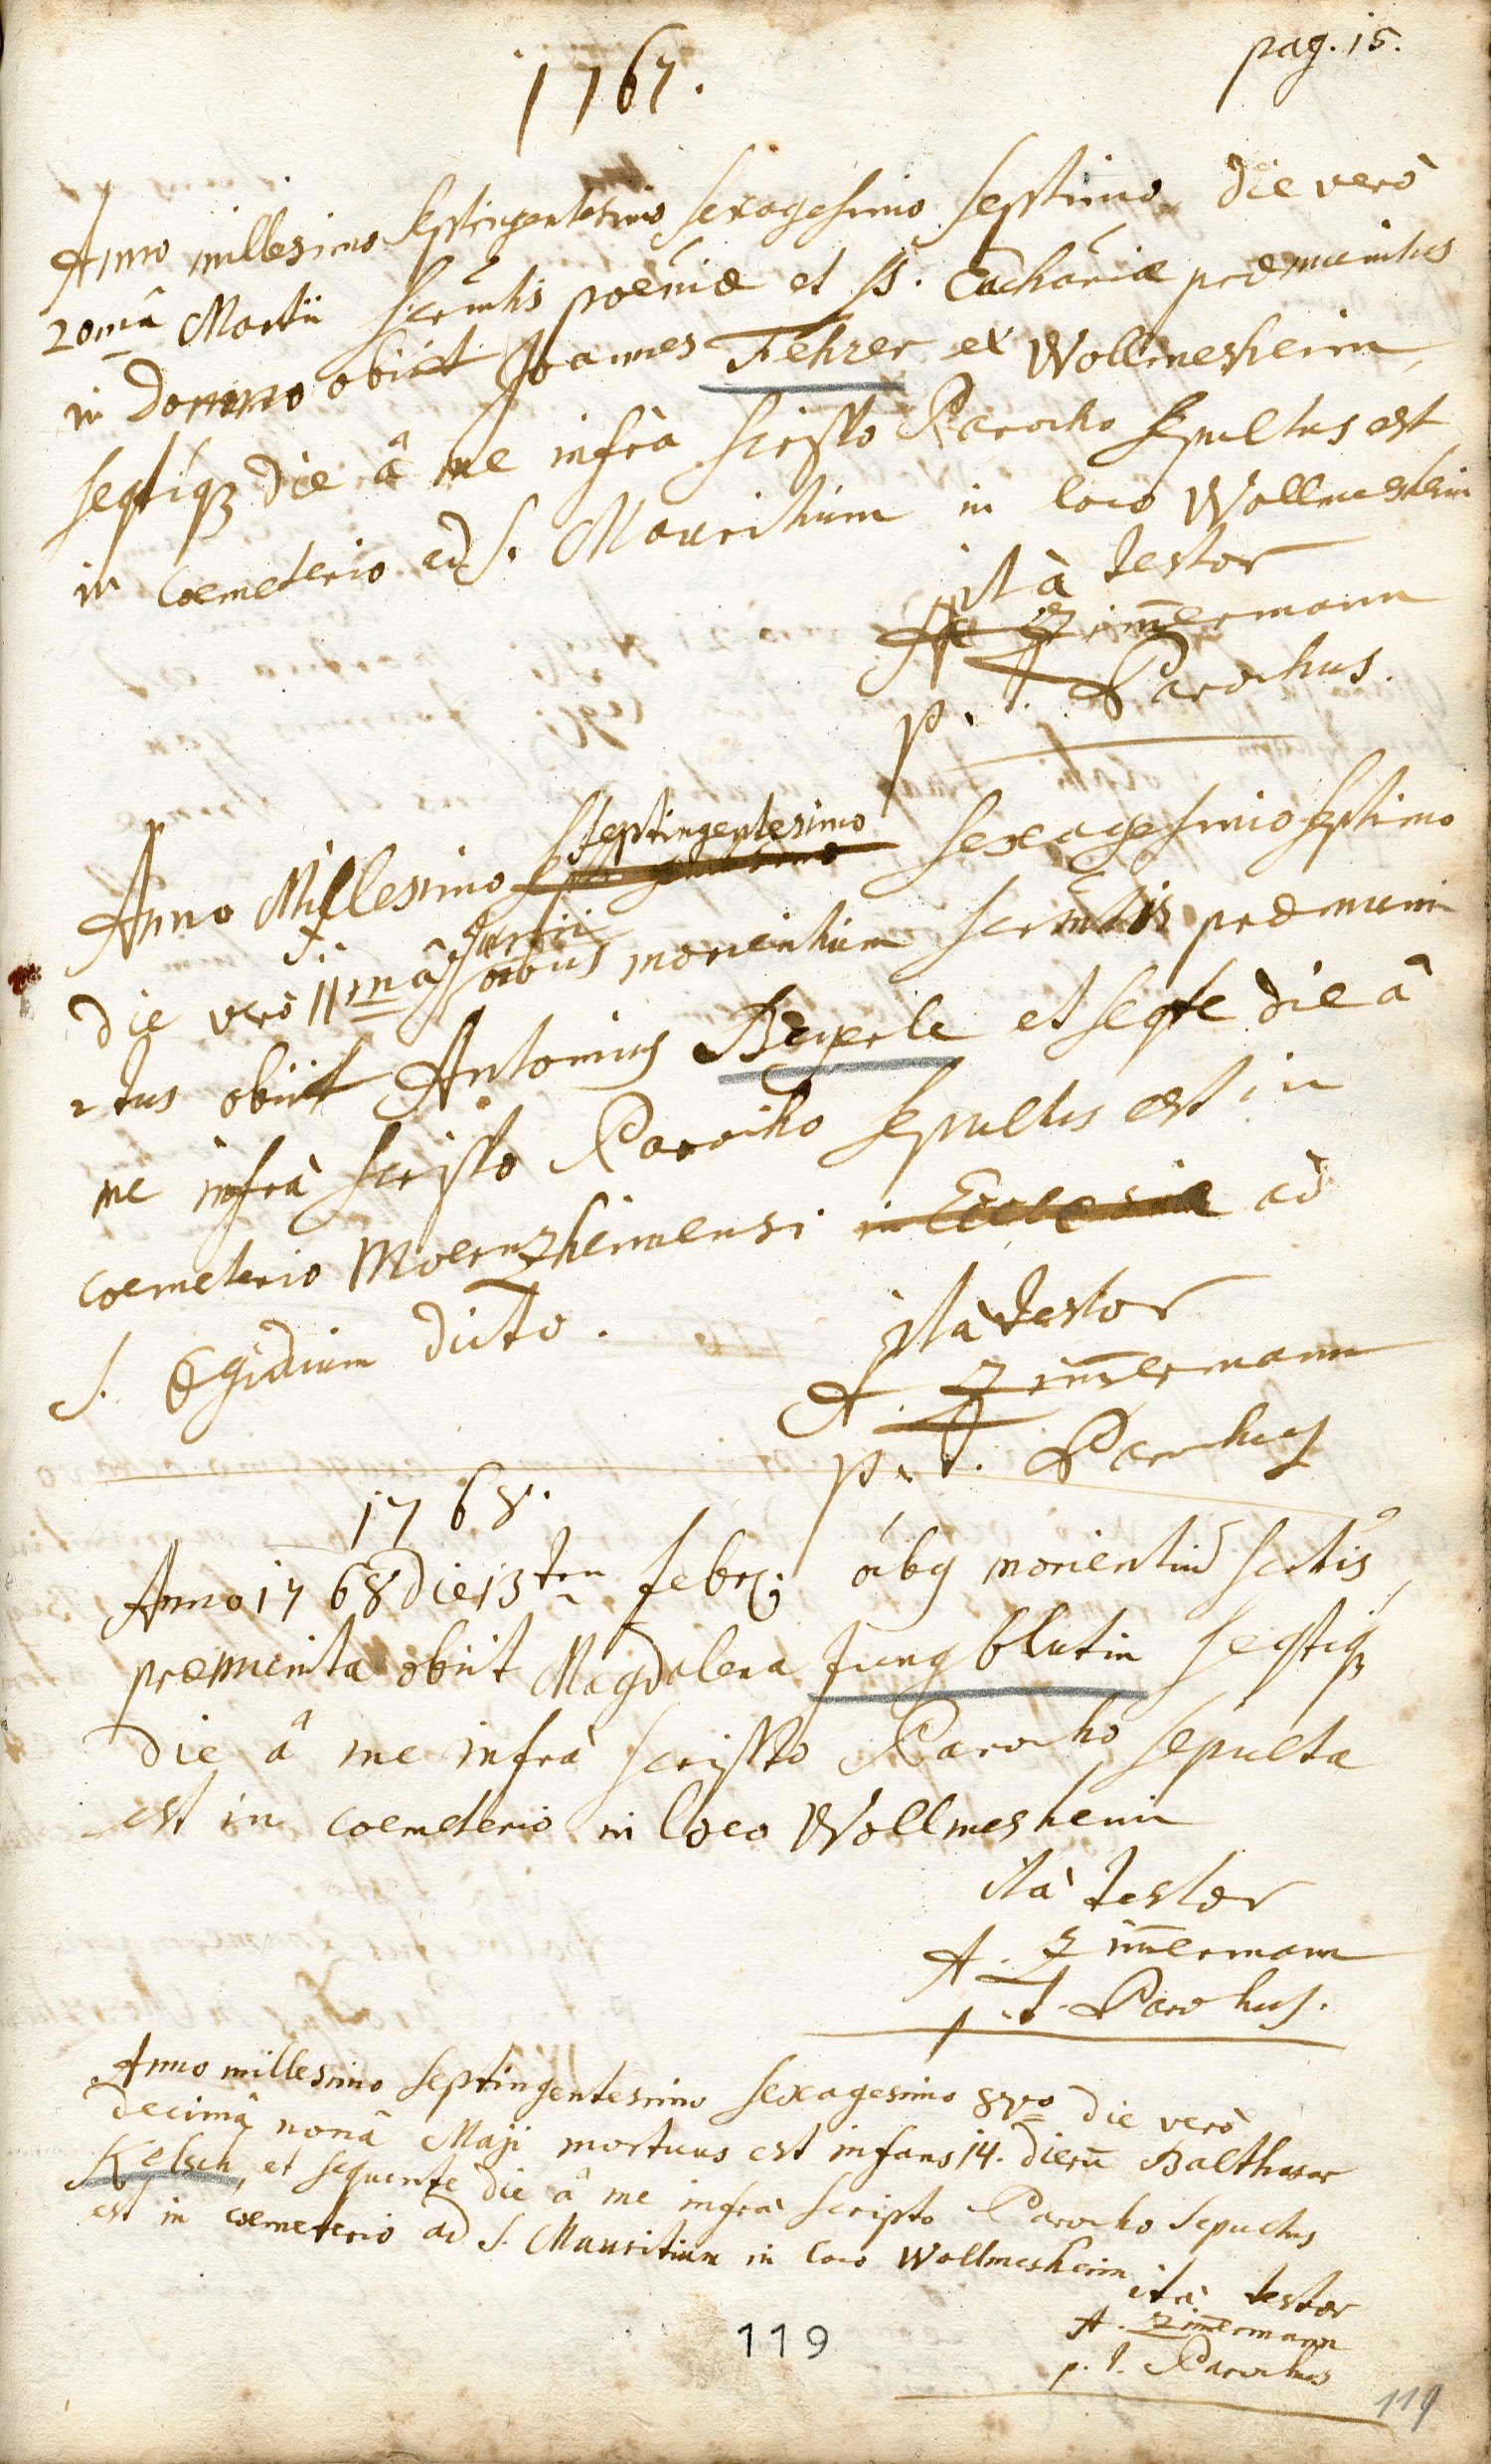 pag. 15.
1767.
Anno millesimo Septingentesimo sexagesimo septimo die verò
20mâ Martii scrmtis poeniæ et ss. Eucharie præmunitus
in Domino obiit Joannes Fehrer ex Wollmesheim,
seqtiqz die â me infrà scripto Parocho sepultus est
in coemeterio ad S. Mauritium in loco Wollmesheim
ità testor
A Zimermann
p. t. Parochus.
Septingentesimo
Anno Millesimo sexagesimo septimo
Martii
die verò 11mâ oibus morientium scrmtis præmuni
tus obiit Antonius Beyerle et seqte die â
me infrà scripto Parocho sepultus est in
coemeterio Moernzheimensi in Ecclesia ad
S. Egidium dicto.
ità testor
A. Zimermann
p. t. Parochus
1768.
Anno 1768 die 13 febr. oibq morientiu scrtis,
præmunita obiit Magdalena Jungblutin seqtiqz
die â me infrà scripto Parocho sepulta
est in coemeterio in loco Wollmesheim
ità testor
A. Zimermann
p. t. Parochus.
Anno millesimo septingentesimo sexagesimo 8vo die verò
decimâ nonâ Maji mortuus est infans 14. dierū Balthasar
Kelsch, et sequente die â me infrà scripto Parocho sepultus
est in coemeterio ad S. Mauritium in loco Wollmesheim
ità testor
A. Zimermann
p. t. Parochus
119
119